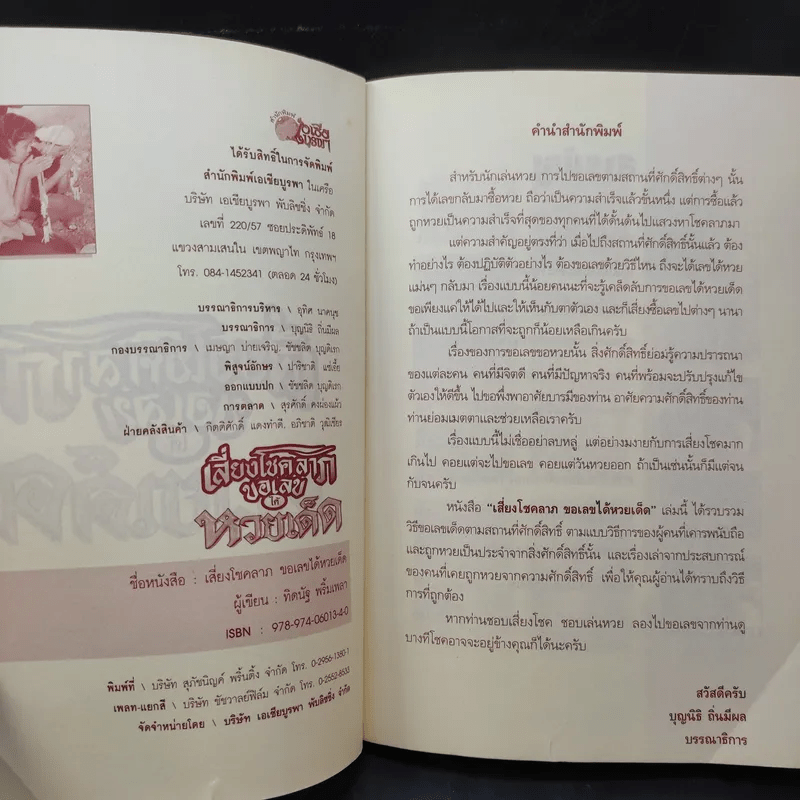 สำนักพิมพ์
เอเชีย
บูรพา
ได้รับสิทธิ์ในการจัดพิมพ์
สำนักพิมพ์เอเชียบูรพา ในเครือ
บริษัท เอเชียบูรพา พับลิชชิ่ง จำกัด
เลขที่ 220/57 ซอยประดิพัทธ์ 18
แขวงสามเสนใน เขตพญาไท กรุงเทพฯ
โทร. 084-1452341 (ตลอด 24 ชั่วโมง)
บรรณาธิการบริหาร \ อุทิศ นาคนุช
บรรณาธิการ \ บุญนิธิ ถิ่นมีผล
กองบรรณาธิการ \ เมษญา บ่ายเจริญ, ชัชชลิต บุญดิเรก
พิสูจน์อักษร \ ปาริชาติ แซ่เอี้ย
ออกแบบปก \ ชัชชลิต บุญดิเรก
การตลาด \ สุรศักดิ์ คงผ่องแผ้ว
ฝ่ายคลังสินค้า \ กิตติศักดิ์ แดงทำดี, อภิชาติ วุฒิเชียง
เสี่ยงโชคลาภ
ขอเลข
ได้
หวยเด็ด
ชื่อหนังสือ : เสี่ยงโชคลาภ ขอเลขได้หวยเด็ด
ผู้เขียน : ทิตนัฐ พริ้มเพลา
ISBN : 978-974-06013-4-0
พิมพ์ที่ \ บริษัท สุภัชนิญค์ พริ้นติ้ง จำกัด โทร. 0-2956-1380-1
เพลท-แยกสี \ บริษัท ชัชวาลย์ฟิล์ม จำกัด โทร. 0-2552-8533
จัดจำหน่ายโดย \ บริษัท เอเชียบูรพา พับลิชชิ่ง จำกัด
คำนำสำนักพิมพ์
สำหรับนักเล่นหวย การไปขอเลขตามสถานที่ศักดิ์สิทธิ์ต่างๆ นั้น
การได้เลขกลับมาซื้อหวย ถือว่าเป็นความสำเร็จแล้วขั้นหนึ่ง แต่การซื้อแล้ว
ถูกหวยเป็นความสำเร็จที่สุดของทุกคนที่ได้ดั้นด้นไปแสวงหาโชคลาภมา
แต่ความสำคัญอยู่ตรงที่ว่า เมื่อไปถึงสถานที่ศักดิ์สิทธิ์นั้นแล้ว ต้อง
ทำอย่างไร ต้องปฏิบัติตัวอย่างไร ต้องขอเลขด้วยวิธีไหน ถึงจะได้เลขได้หวย
แม่นๆ กลับมา เรื่องแบบนี้น้อยคนนะที่จะรู้เคล็ดลับการขอเลขได้หวยเด็ด
ขอเพียงแค่ให้ได้ไปและให้เห็นกับตาตัวเอง และก็เสี่ยงซื้อเลขไปต่างๆ นานา
ถ้าเป็นแบบนี้โอกาสที่จะถูกก็น้อยเหลือเกินครับ
เรื่องของการขอเลขขอหวยนั้น สิ่งศักดิ์สิทธิ์ย่อมรู้ความปรารถนา
ของแต่ละคน คนที่มีจิตดี คนที่มีปัญหาจริง คนที่พร้อมจะปรับปรุงแก้ไข
ตัวเองให้ดีขึ้น ไปขอพึ่งพาอาศัยบารมีของท่าน อาศัยความศักดิ์สิทธิ์ของท่าน
ท่านย่อมเมตตาและช่วยเหลือเราครับ
เรื่องแบบนี้ไม่เชื่ออย่าลบหลู่ แต่อย่างมงายกับการเสี่ยงโชคมาก
เกินไป คอยแต่จะไปขอเลข คอยแต่วันหวยออก ถ้าเป็นเช่นนั้นก็มีแต่จน
กับจนครับ
หนังสือ "เสี่ยงโชคลาภ ขอเลขได้หวยเด็ด" เล่มนี้ ได้รวบรวม
วิธีขอเลขเด็ดตามสถานที่ศักดิ์สิทธิ์ ตามแบบวิธีการของผู้คนที่เคารพนับถือ
และถูกหวยเป็นประจำจากสิ่งศักดิ์สิทธิ์นั้น และเรื่องเล่าจากประสบการณ์
ของคนที่เคยถูกหวยจากความศักดิ์สิทธิ์ เพื่อให้คุณผู้อ่านได้ทราบถึงวิธี
การที่ถูกต้อง
หากท่านชอบเสี่ยงโชค ชอบเล่นหวย ลองไปขอเลขจากท่านดู
บางทีโชคอาจจะอยู่ข้างคุณก็ได้นะครับ
สวัสดีครับ
บุญนิธิ ถิ่นมีผล
บรรณาธิการ